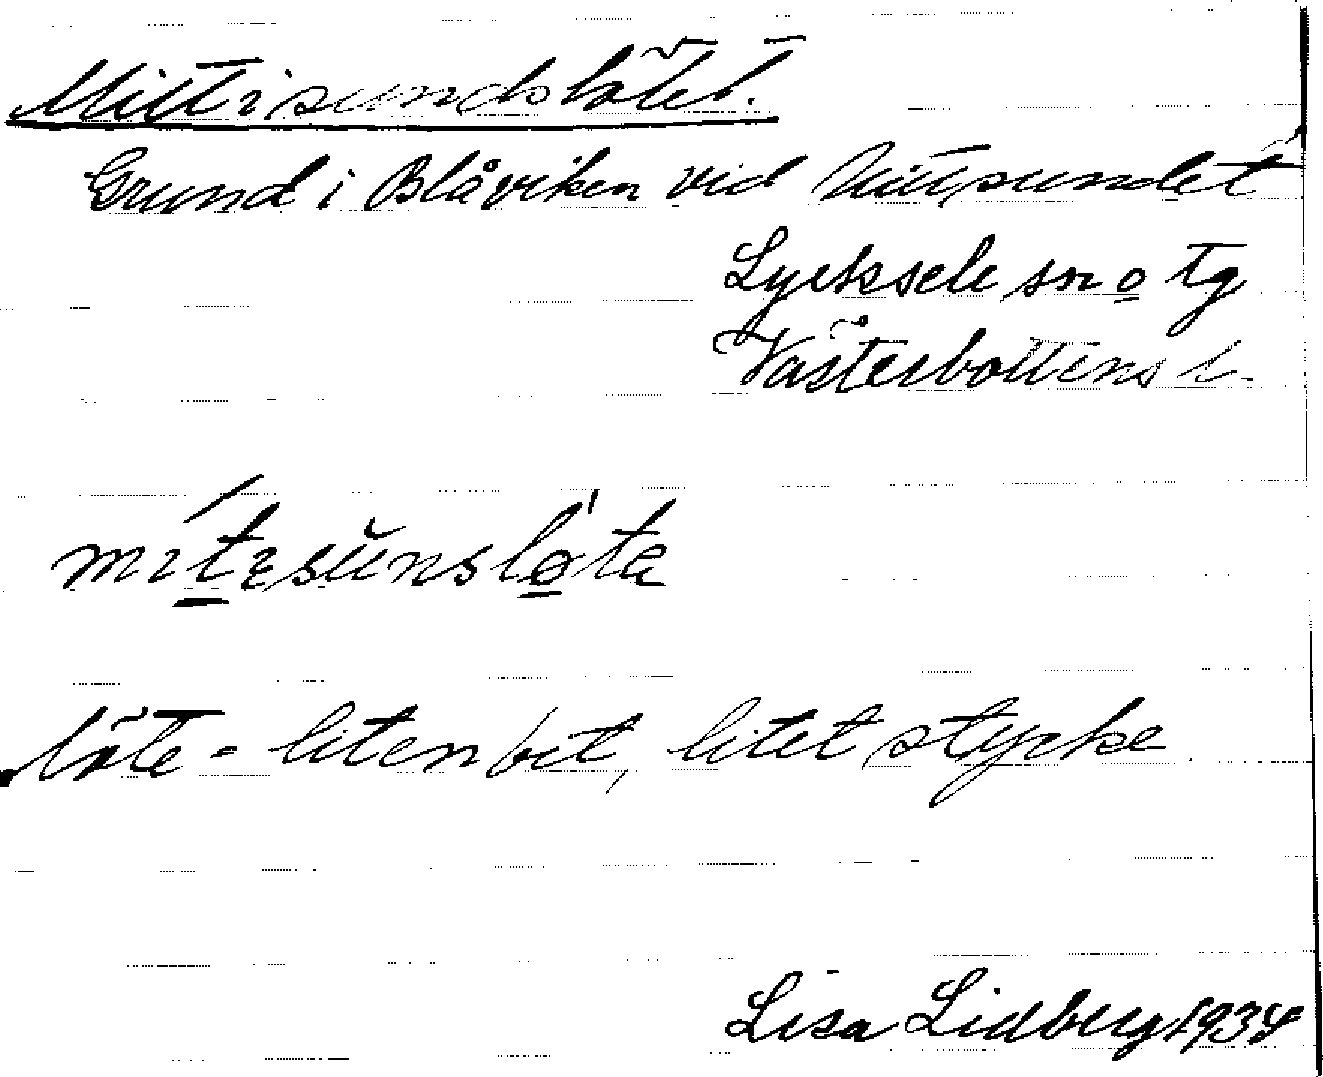 Mitt i sundslötet.
Grund i Blåviken vid Mittsundet
Lycksele sn o tg
Västerbottens l.
mı́tesŭnslø̱'te
löte = liten bit, litet stycke
Lisa Lidberg 1934